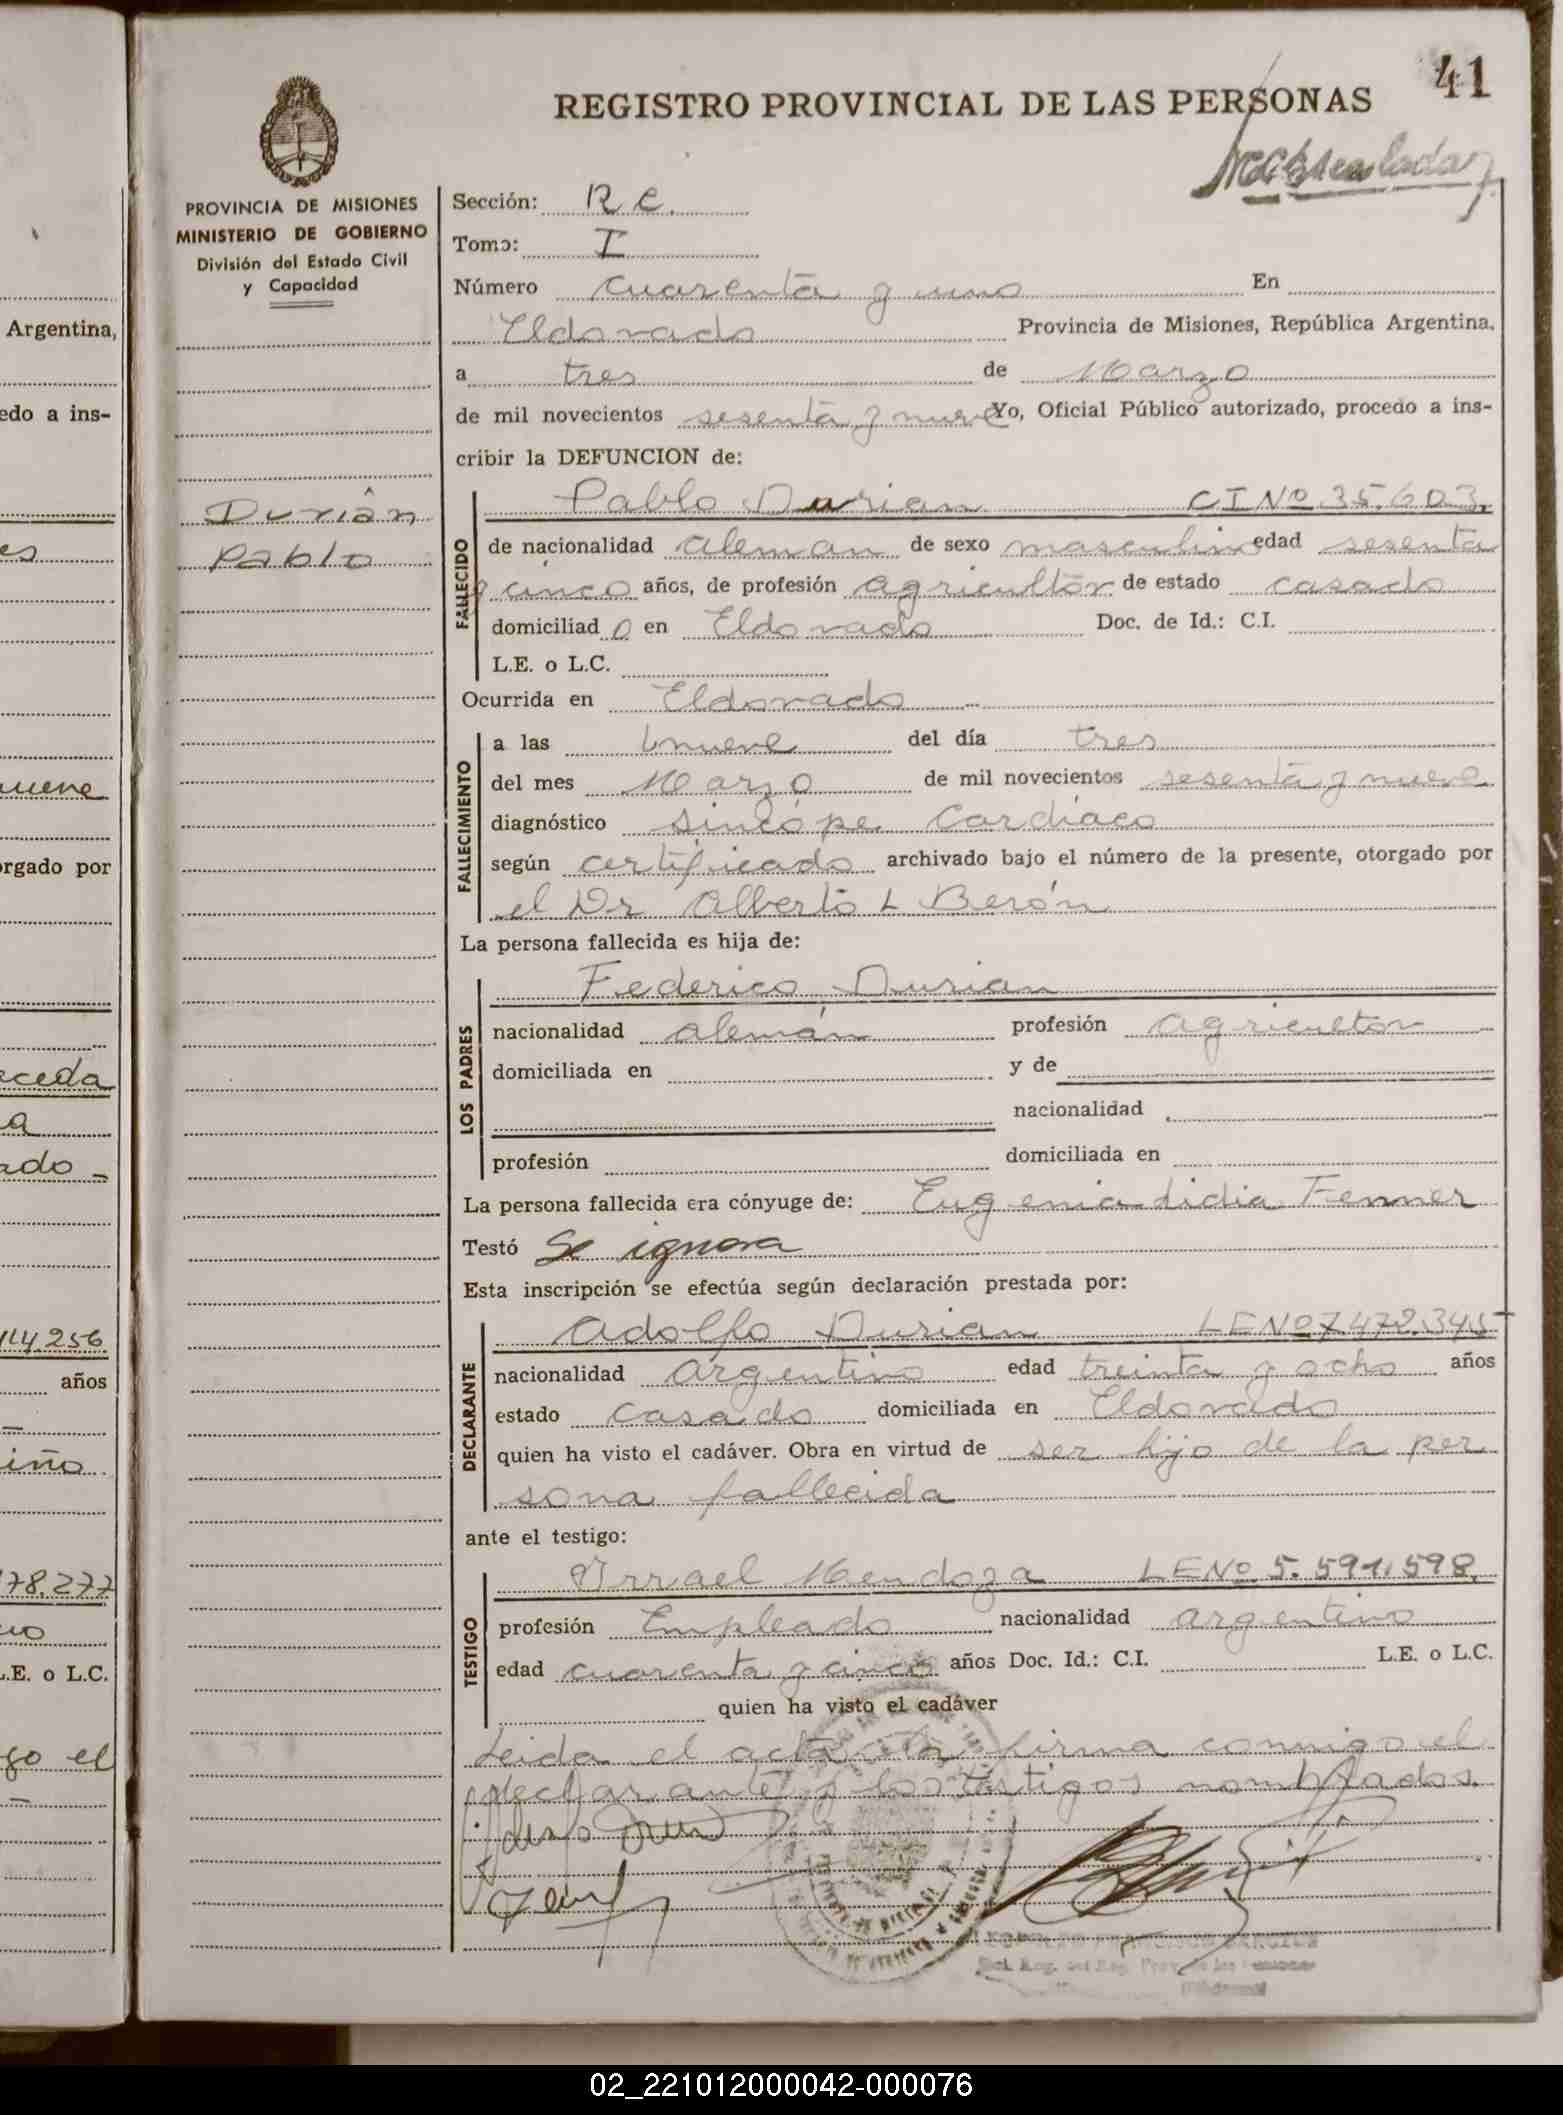 41
REGISTRO PROVINCIAL DE LAS PERSONAS
PROVINCIA DE MISIONES
MINISTERIO DE GOBIERNO
División del Estado Civil
y Capacidad
Durián
Pablo
Sección: R C.
Tomo: I
Número cuarenta y uno En
Eldorado Provincia de Misiones, República Argentina,
a tres de Marzo
de mil novecientos sesenta y nueve Yo, Oficial Público autorizado, procedo a ins-
cribir la DEFUNCION de:
FALLECIDO
Pablo Durian CI Nº 35.603.
de nacionalidad aleman de sexo masculino edad sesenta
y cinco años, de profesión agricultor de estado casado
domiciliad o en Eldorado Doc. de Id.: C.I.
L.E. o L.C.
Ocurrida en Eldorado
FALLECIMIENTO
a las nueve del día tres
del mes Marzo de mil novecientos sesenta y nueve
diagnóstico sincópe Cardiaco
según certificado archivado bajo el número de la presente, otorgado por
el Dr Alberto L Berón
La persona fallecida es hija de:
LOS PADRES
Federico Durian
nacionalidad alemán profesión agricultor
domiciliada en y de
nacionalidad
profesión domiciliada en
La persona fallecida era cónyuge de: Eugenia Lidia Fenner
Testó Se ignora
Esta inscripción se efectúa según declaración prestada por:
DECLARANTE
Adolfo Durian LE Nº 7.472.345
nacionalidad argentino edad treinta y ocho años
estado casado domiciliada en Eldorado
quien ha visto el cadáver. Obra en virtud de ser hijo de la per
sona fallecida
ante el testigo:
TESTIGO
Irrael Mendoza LE Nº 5.591.598.
profesión Empleado nacionalidad argentino
edad cuarenta y cinco años Doc. Id.: C.I. L.E. o L.C.
quien ha visto el cadáver
Leida el acta la firma conmigo el
declarante y los testigos nombrados.
Argentina,
edo a ins-
es
uene
orgado por
ceda
a
ado -
114.256
años
iño
178.277
L.E. o L.C.
go el
02_221012000042-000076